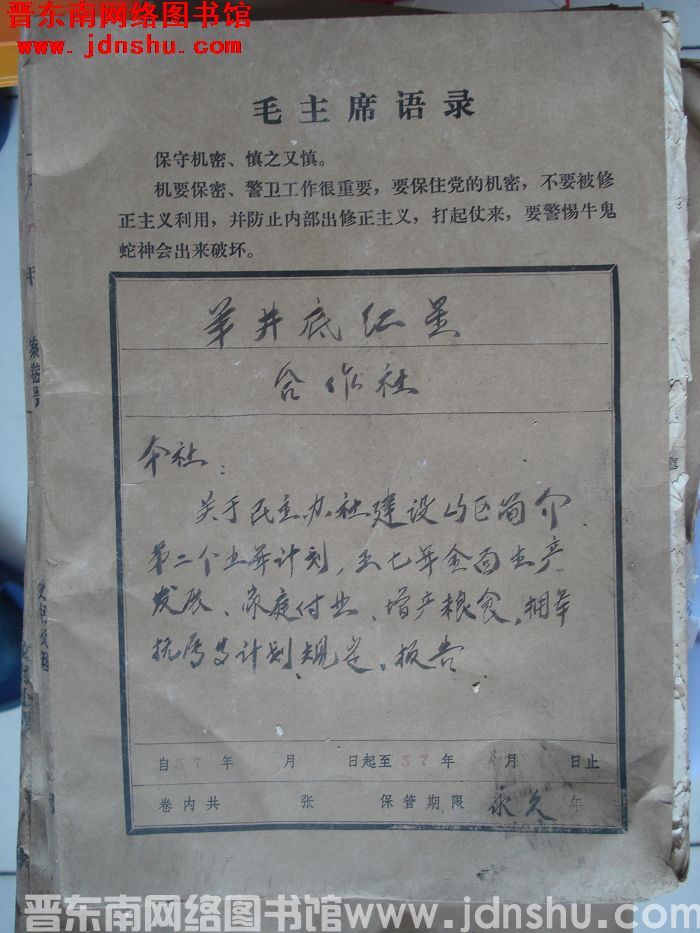 晋东南网络图书馆
www.jdnshu.com
毛主席语录
保守机密、慎之又慎。
机要保密、警卫工作很重要，要保住党的机密，不要被修
正主义利用，并防止内部出修正主义，打起仗来，要警惕牛鬼
蛇神会出来破坏。
羊井底红星
合作社
本社：
关于民主办社建设山区简介
第二个五年计划，五七年全面生产
发展、家庭付业、增产粮食、拥军
抗属及计划、规定、报告
自57年 月 日起至57年 月 日止
卷内共 张 保管期限 永久 年
年
案卷号
晋东南网络图书馆www.jdnshu.com/